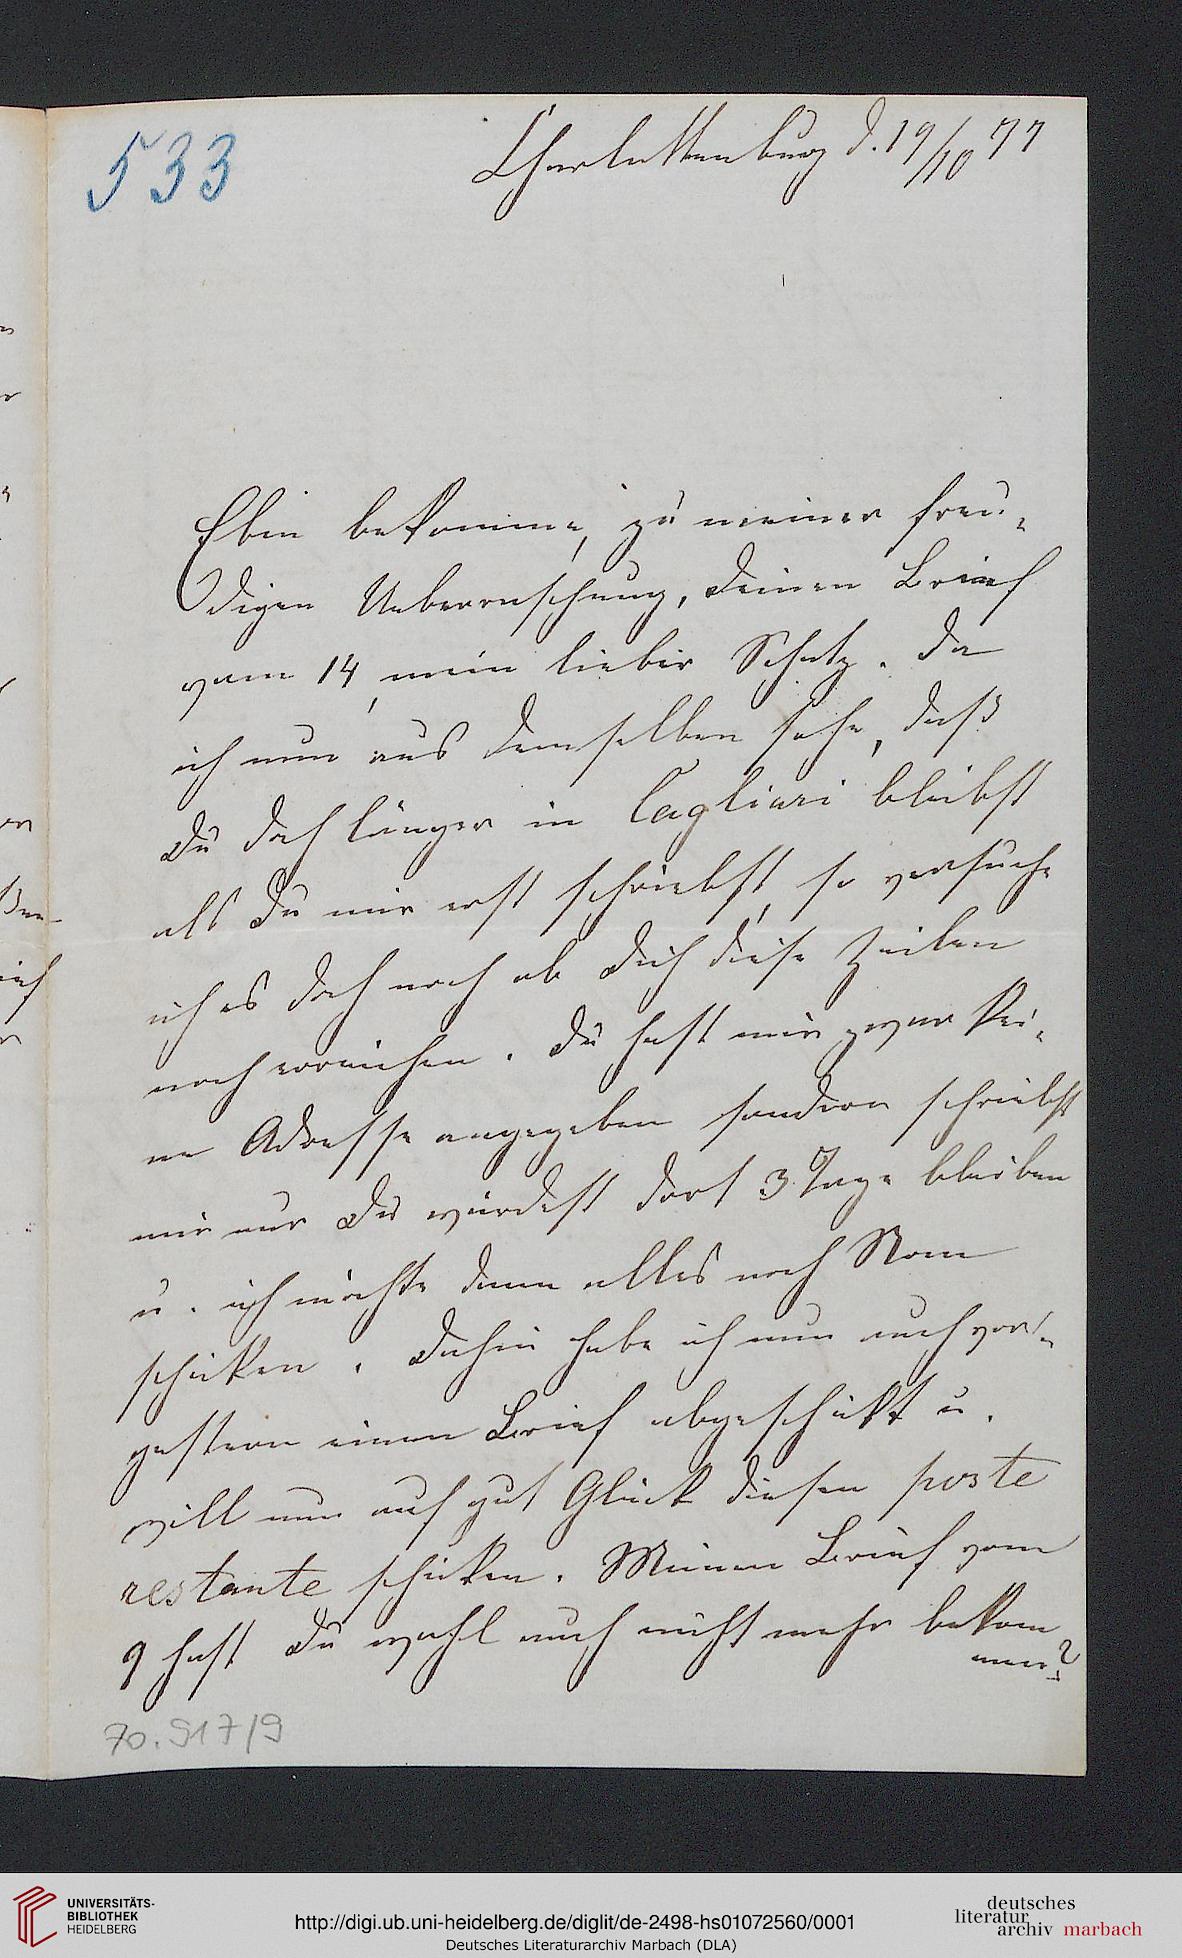 533
Charlottenburg d. 19/10 77
Eben bekomme, zu meiner freu-
digen Ueberraschung, Deinen Brief
vom 14, mein lieber Schatz. Da
ich nun aus demselben sehe, daß
Du doch länger in Cagliari bleibst
als Du mir erst schriebst, so versuche
ich es doch noch ob Dich diese Zeilen
noch erreichen. Du hast mir zwar kei-
ne Adresse angegeben sondern schriebst
mir nur Du würdest dort 3 Tage bleiben
u. ich möchte dann alles nach Rom
schicken. Dahin habe ich nun auch vor-
gestern einen Brief abgeschickt u.
will nun auf gut Glück diesen poste
restante schicken. Meinen Brief vom
9 hast Du wohl auch nicht mehr bekom
men?
70.917/9
UNIVERSITÄTS-
BIBLIOTHEK
HEIDELBERG
http://digi.ub.uni-heidelberg.de/diglit/de-2498-hs01072560/0001
Deutsches Literaturarchiv Marbach (DLA)
deutsches
literatur
archiv marbach